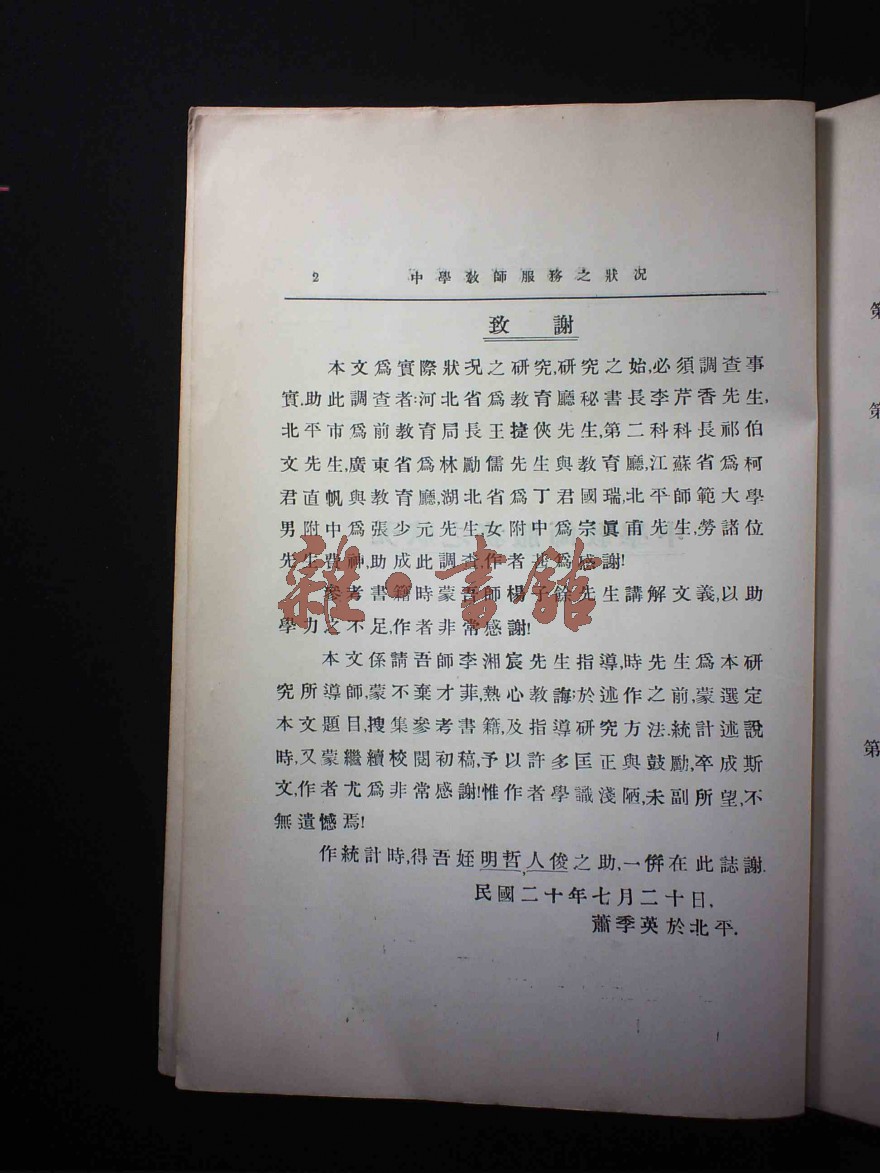 2 中學教師服務之狀况
致謝
本文爲實際狀况之研究,研究之始,必須調查事
實.助此調查者:河北省爲教育廳秘書長李芹香先生,
北平市爲前教育局長王捷俠先生,第二科科長祁伯
文先生,廣東省爲林勵儒先生與教育廳,江蘇省爲柯
君直帆與教育廳,湖北省爲丁君國瑞,北平師範大學
男附中爲張少元先生,女附中爲宗眞甫先生,勞諸位
先生費神,助成此調查,作者甚爲感謝!
參考書籍時蒙吾師楊子餘先生講解文義,以助
學力之不足,作者非常感謝!
本文係請吾師李湘宸先生指導,時先生爲本研
究所導師,蒙不棄才菲,熱心教誨:於述作之前,蒙選定
本文題目,搜集參考書籍,及指導研究方法.統計述說
時,又蒙繼續校閱初稿,予以許多匡正與鼓勵,卒成斯
文,作者尤爲非常感謝!惟作者學識淺陋,未副所望,不
無遺憾焉!
作統計時,得吾姪明哲,人俊之助,一倂在此誌謝.
民國二十年七月二十日,
蕭季英於北平.
雜·書館
第
第
第